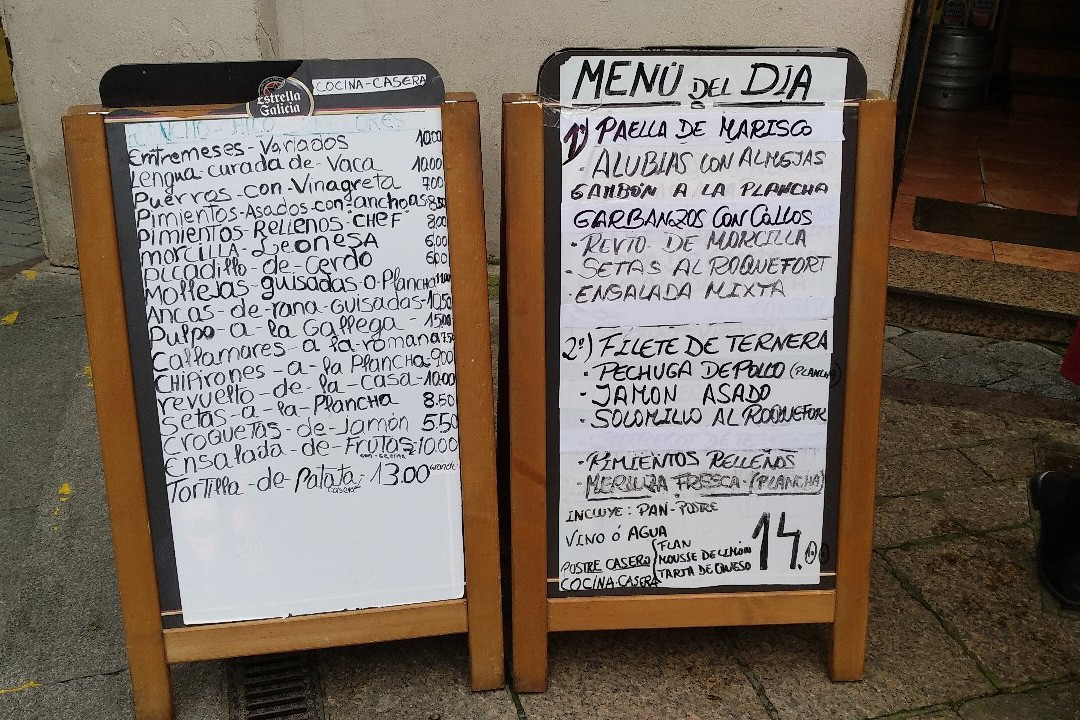 Estrella
Galicia
COCINA-CASERA
Entremeses-Variados 10.00
Lengua curada de-Vaca 10.00
Puerros-con-Vinagreta 7,00
Pimientos-Asados con-anchoas 8,50
Pimientos-Rellenos-"CHEF" 8,00
MORCILLA-Leonesa 6,00
Picadillo-de-Cerdo 6,00
Mollejas-guisadas-o-Plancha
Ancas-de-rana-Guisadas-10,50
Pulpo-a-la Gallega 15,00
Callamares-a la-romana
CHIPIRONES-a-la PLANCHA-9,00
revuelto-de-la-Casa-10,00
Setas-a-la-PLANCHA 8.50
Croquetas-de-Jamón 5.50
Ensalada-de-Frutas-10.00
Tortilla-de-Patata 13.00 Grande
casera
MENÚ DEL DIA
1º) PAELLA DE MARISCO
· ALUBIAS CON ALMEJAS
GAMBÓN A LA PLANCHA
GARBANZOS CON CALLOS
· REVTO DE MORCILLA
· SETAS AL ROQUEFORT
· ENSALADA MIXTA
2º) FILETE DE TERNERA
· PECHUGA DE POLLO (PLANCHA)
· JAMON ASADO
· SOLOMILLO AL ROQUEFOR
· PIMIENTOS RELLENOS
· MERLUZA FRESCA-(PLANCHA)
INCLUYE: PAN-POSTRE
VINO Ó AGUA
POSTRE CASERO FLAN
MOUSSE DE LIMÓN
TARTA DE QUESO
COCINA-CASERA
14.00